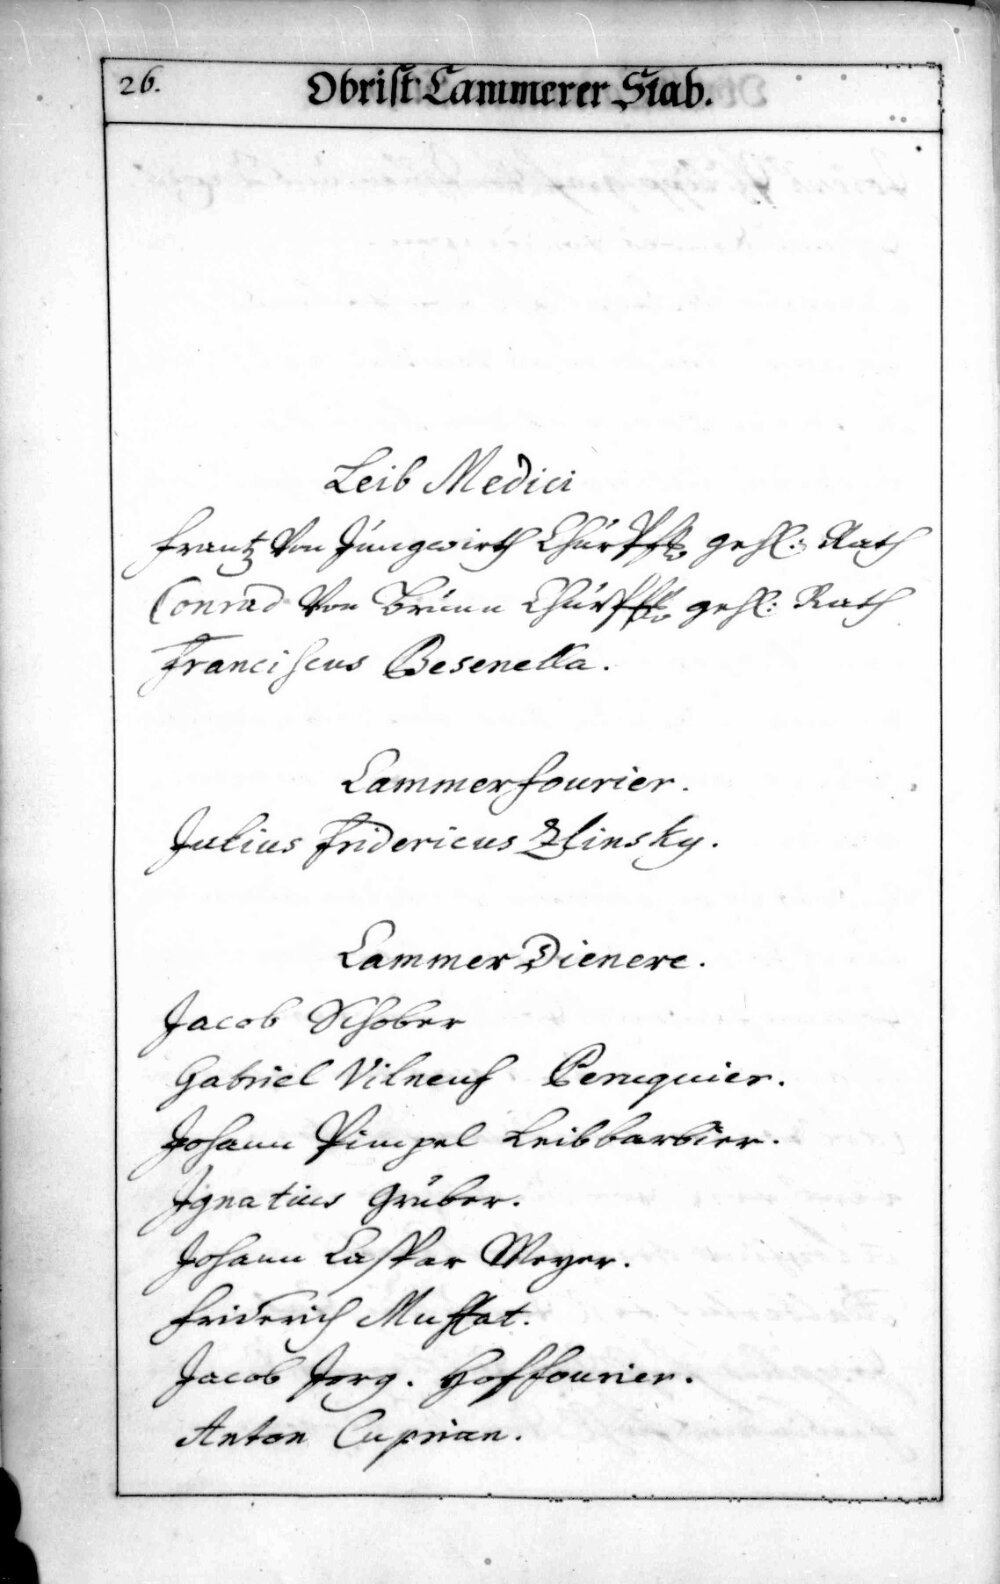 26.
Obrist Cammerer Stab.
Leib Medici
Frantz Von Jungwirth ChurPflz gehl: Rath
Conrad Von Brunn ChurPflz gehl: Rath
Franciscus Besenella.
Cammerfourier.
Julius Fridericus Zlinsky.
Cammer Dienere.
Jacob Schober
Gabriel Vilneuf Peruquier.
Johann Pimpel Leibbarbier.
Ignatius Gruber.
Johann Caspar Meyer.
Friderich Muffat.
Jacob Jorg. Hoffourier.
Anton Cuprian.